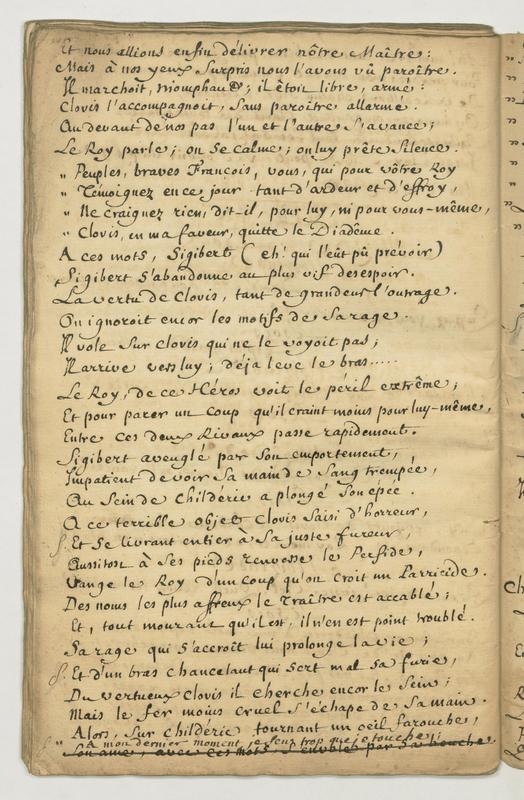 Et nous allions enfin délivrer nôtre Maître :
Mais à nos yeux surpris nous l'avons vû paroître.
Il marchoit, triomphant ; il étoit libre, armé :
Clovis l'accompagnoit, sans paroître allarmé.
Au devant de nos pas l'un et l'autre s'avance ;
Le Roy parle ; on se calme ; on luy prête silence.
" Peuples, braves François, vous, qui pour vôtre Roy
" Témoignez en ce jour tant d'ardeur et d'effroy,
" Ne craignez rien, dit-il, pour luy, ni pour vous-même,
" Clovis, en ma faveur, quitte le Diadême.
A ces mots, Sigibert (eh ! qui l'eût pû prévoir)
Sigibert s'abandonne au plus vif desespoir.
La vertu de Clovis, tant de grandeur l'outrage.
On ignoroit encor les motifs de sa rage.
Il vole sur Clovis qui ne le voyoit pas ;
Il arrive vers luy ; déja leve le bras.....
Le Roy, de ce Héros voit le péril extrême ;
Et pour parer un coup qu'il craint moins pour luy-même,
Entre ces deux Rivaux passe rapidement.
Sigibert aveuglé par son emportement,
Impatient de voir sa main de sang trempée,
Au sein de Childeric a plongé son épée.
A ce terrible objet Clovis saisi d'horreur,
Et se livrant entier à sa juste fureur,
Aussitost à ses pieds renverse le Perfide,
Vange le Roy d'un coup qu'on croit un Parricide.
Des noms les plus affreux le Traître est accablé ;
Et, tout mourant qu'il est, il n'en est point troublé.
Sa rage qui s'accroît lui prolonge la vie ;
Et d'un bras chancelant qui sert mal sa furie,
Du vertueux Clovis il cherche encor le sein ;
Mais le fer moins cruel s'échape de sa main.
Alors, sur Childeric tournant un oeil farouche,
" A mon dernier moment, je sens trop que je touche ;
Son ame, avec ces mots s'envole par sa bouche